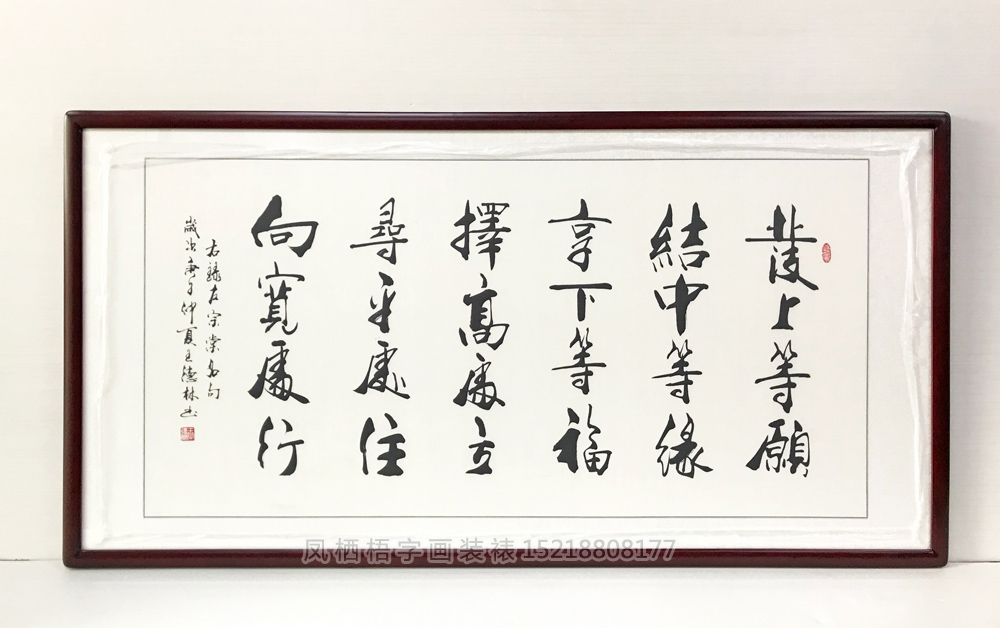 發上等願
結中等緣
享下等福
擇高處立
尋平處住
向寬處行
右錄左宗棠名句
歲次庚子仲夏王德林書
凤栖梧字画装裱15218808177